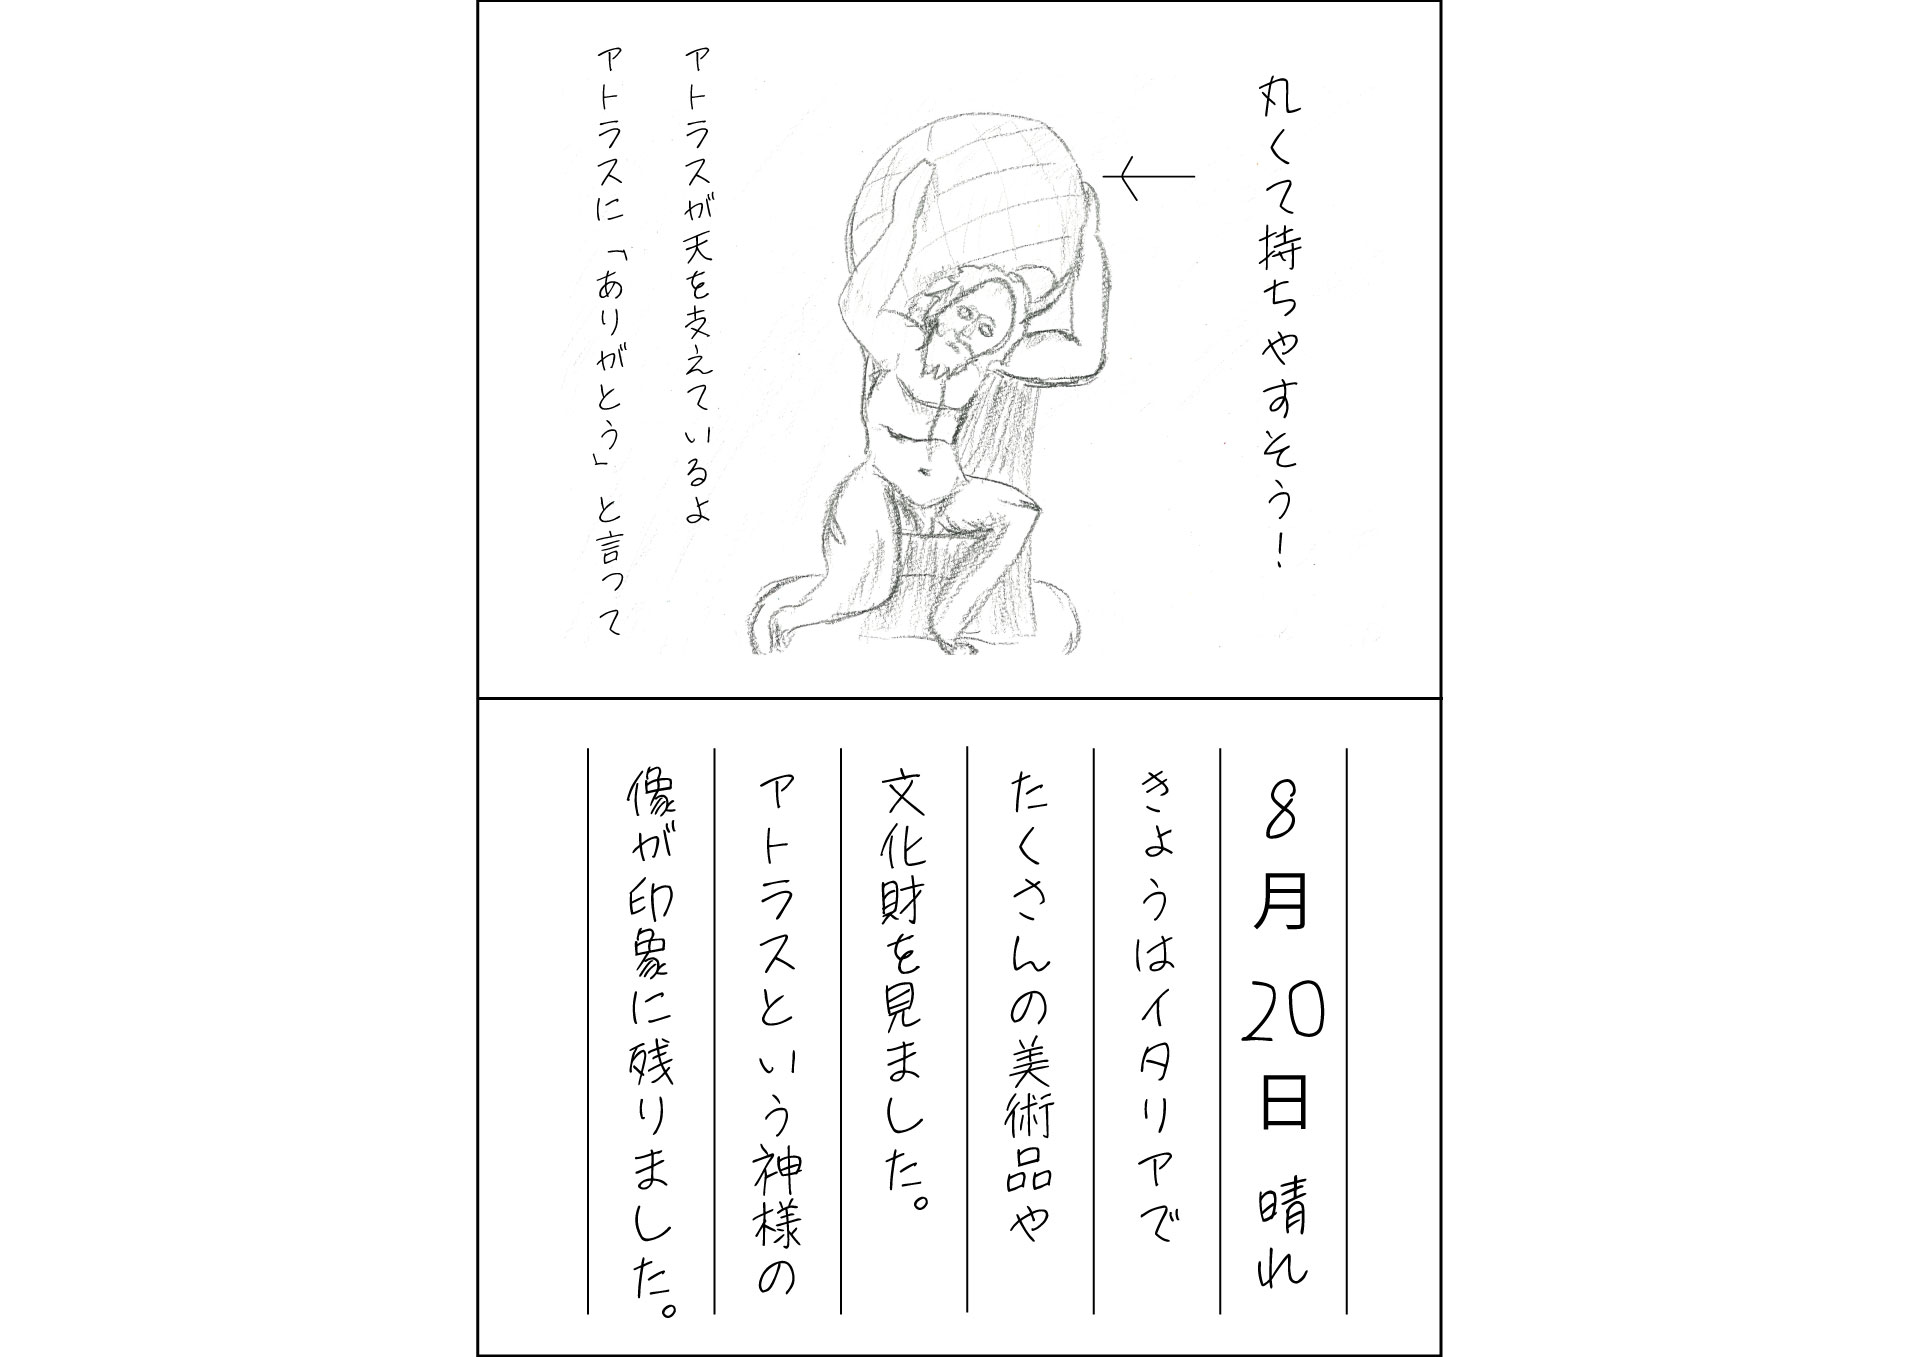 丸くて持ちやすそう！
アトラスが天を支えているよ
アトラスに「ありがとう」と言って
8月20日 晴れ
きようはイタリアで
たくさんの美術品や
文化財を見ました。
アトラスという神様の
像が印象に残りました。